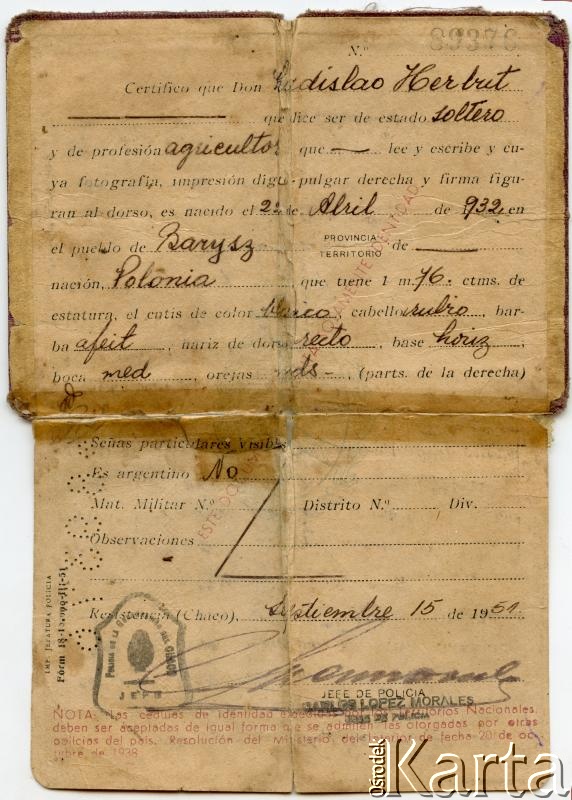 N.º 89376
Certifico que Don Ladislao Herbut
que dice ser de estado soltero
y de profesión agricultor que — lee y escribe y cu-
ya fotografía, impresión dígito-pulgar derecha y firma figu-
ran al dorso, es nacido el 22 de Abril de 932 en
el pueblo de Barysz PROVINCIA TERRITORIO de
nación, Polonia que tiene 1 m. 76. ctms. de
estatura, el cutis de color blanco, cabello rubio, bar-
ba afeit, nariz de dorso recto, base horiz,
boca med, orejas (parts. de la derecha)
Señas particulares visibles
Es argentino No
Mat. Militar N.º Distrito N.º Div.
Observaciones
Resistencia (Chaco), Septiembre 15 de 1951
JEFE
JEFE DE POLICIA
CARLOS LOPEZ MORALES
JEFE DE POLICIA
NOTA: Las cédulas de identidad Territorios Nacionales,
deben ser aceptadas de igual forma que se admiten las otorgadas por otras
policías del país. Resolución del Ministerio del Interior de fecha 20 de oc-
tubre de 1938
IMP. JEFATURA POLICIA
Ośrodek
Karta